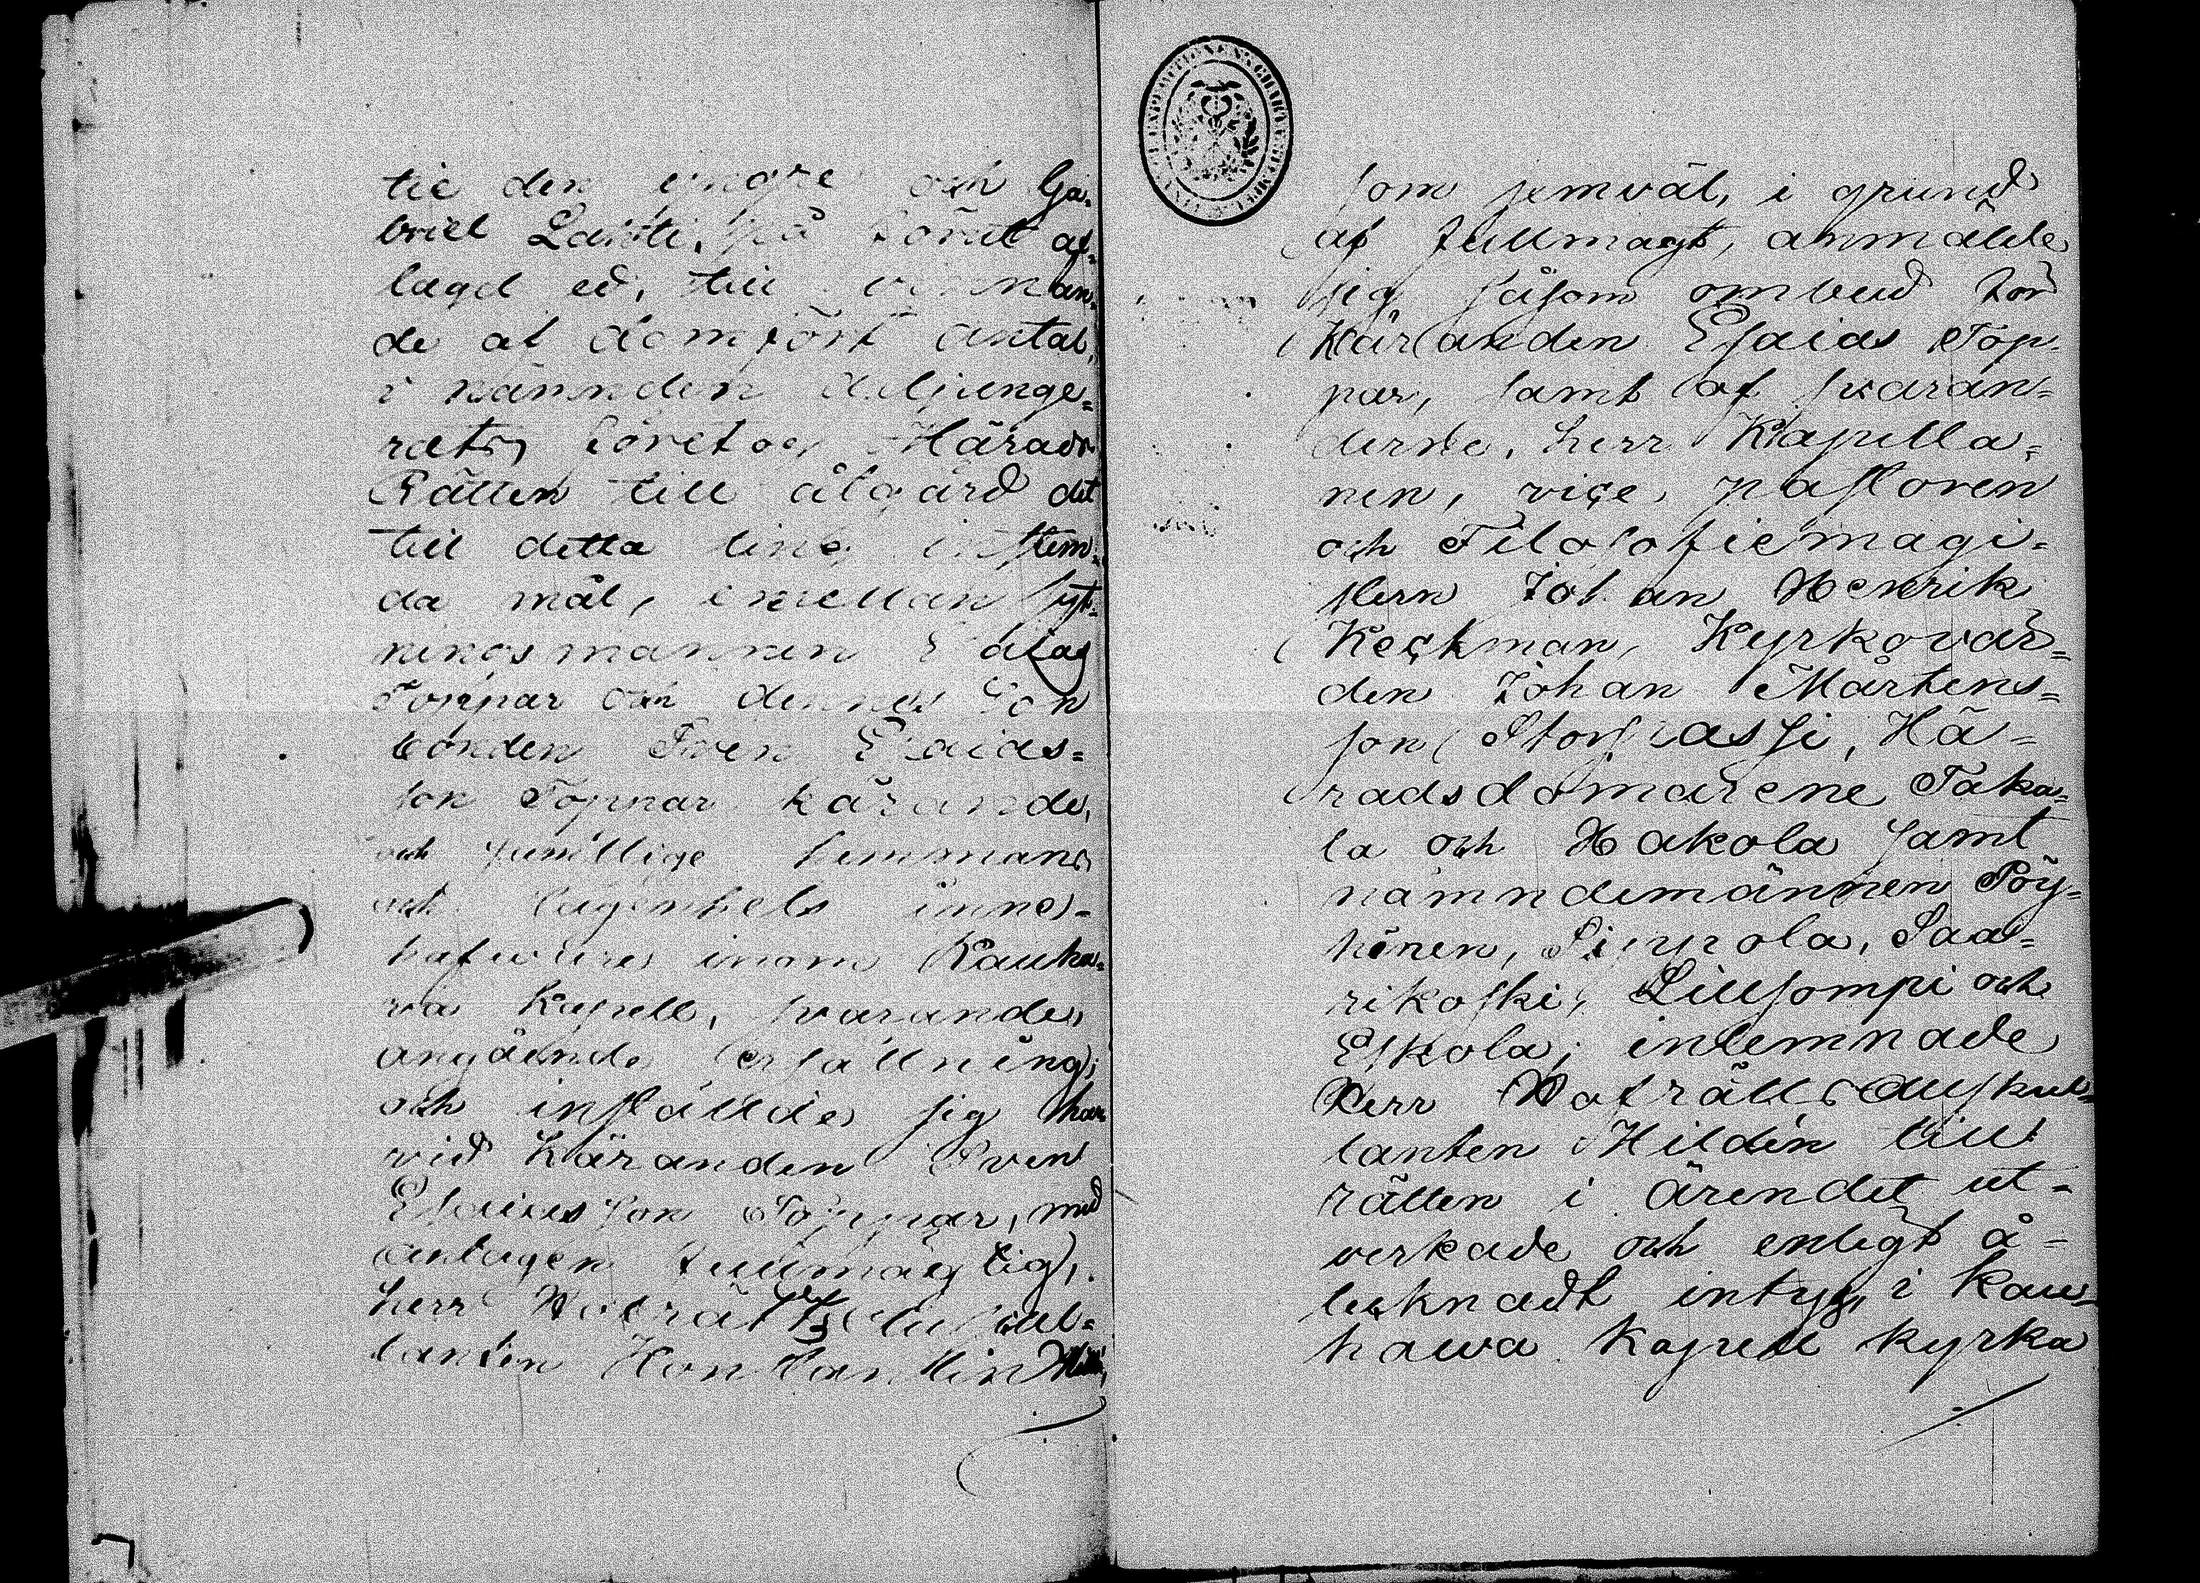 tie den yngre och Ga-
briel Lahti, på förut af-
lagd ed, till vinnan-
de af domfört antal,
i nämnden adjunge-
rats, företog Härads
Rätten till åtgärd det
till detta ting instem-
da mål, emellan Syt-
ningsmannen Esaias
Toppar och dennes Son
bonden Sven Esaias-
son Toppar kärande,
och samtlige hemmans
och lägenhets inne-
hafware inom Kauha-
va Kapell, svarande,
angående ersättning;
och inställde sig har-
vid Käranden Sven
Esaiasson Toppar, med
antagen fullmägtig,
herr Hofrätts Auskul-
tanten Konstantin
som jemväl, i grund
af fullmagt, anmälde
sig såsom ombud för
Käranden Esaias Top-
par, samt af svaran-
derne, herr Kapella-
nen, vice pastoren
och Filosofiemagi-
stern Johan Henrik
Keckman, Kyrkovär-
den Johan Mårtens-
son Storpassi, Hä-
radsdomarene Taka-
la och Hakola samt
nämndemännen Pöy-
hönen, Sippola, Saa-
rikoski, Lillsompi och
Eskola; inlemnade
Herr Hofrätts Auskul-
tanten Hildén till
rätten i ärendet ut-
verkade och enligt å-
tecknadt intyg, i Kau-
hawa Kapell kyrka